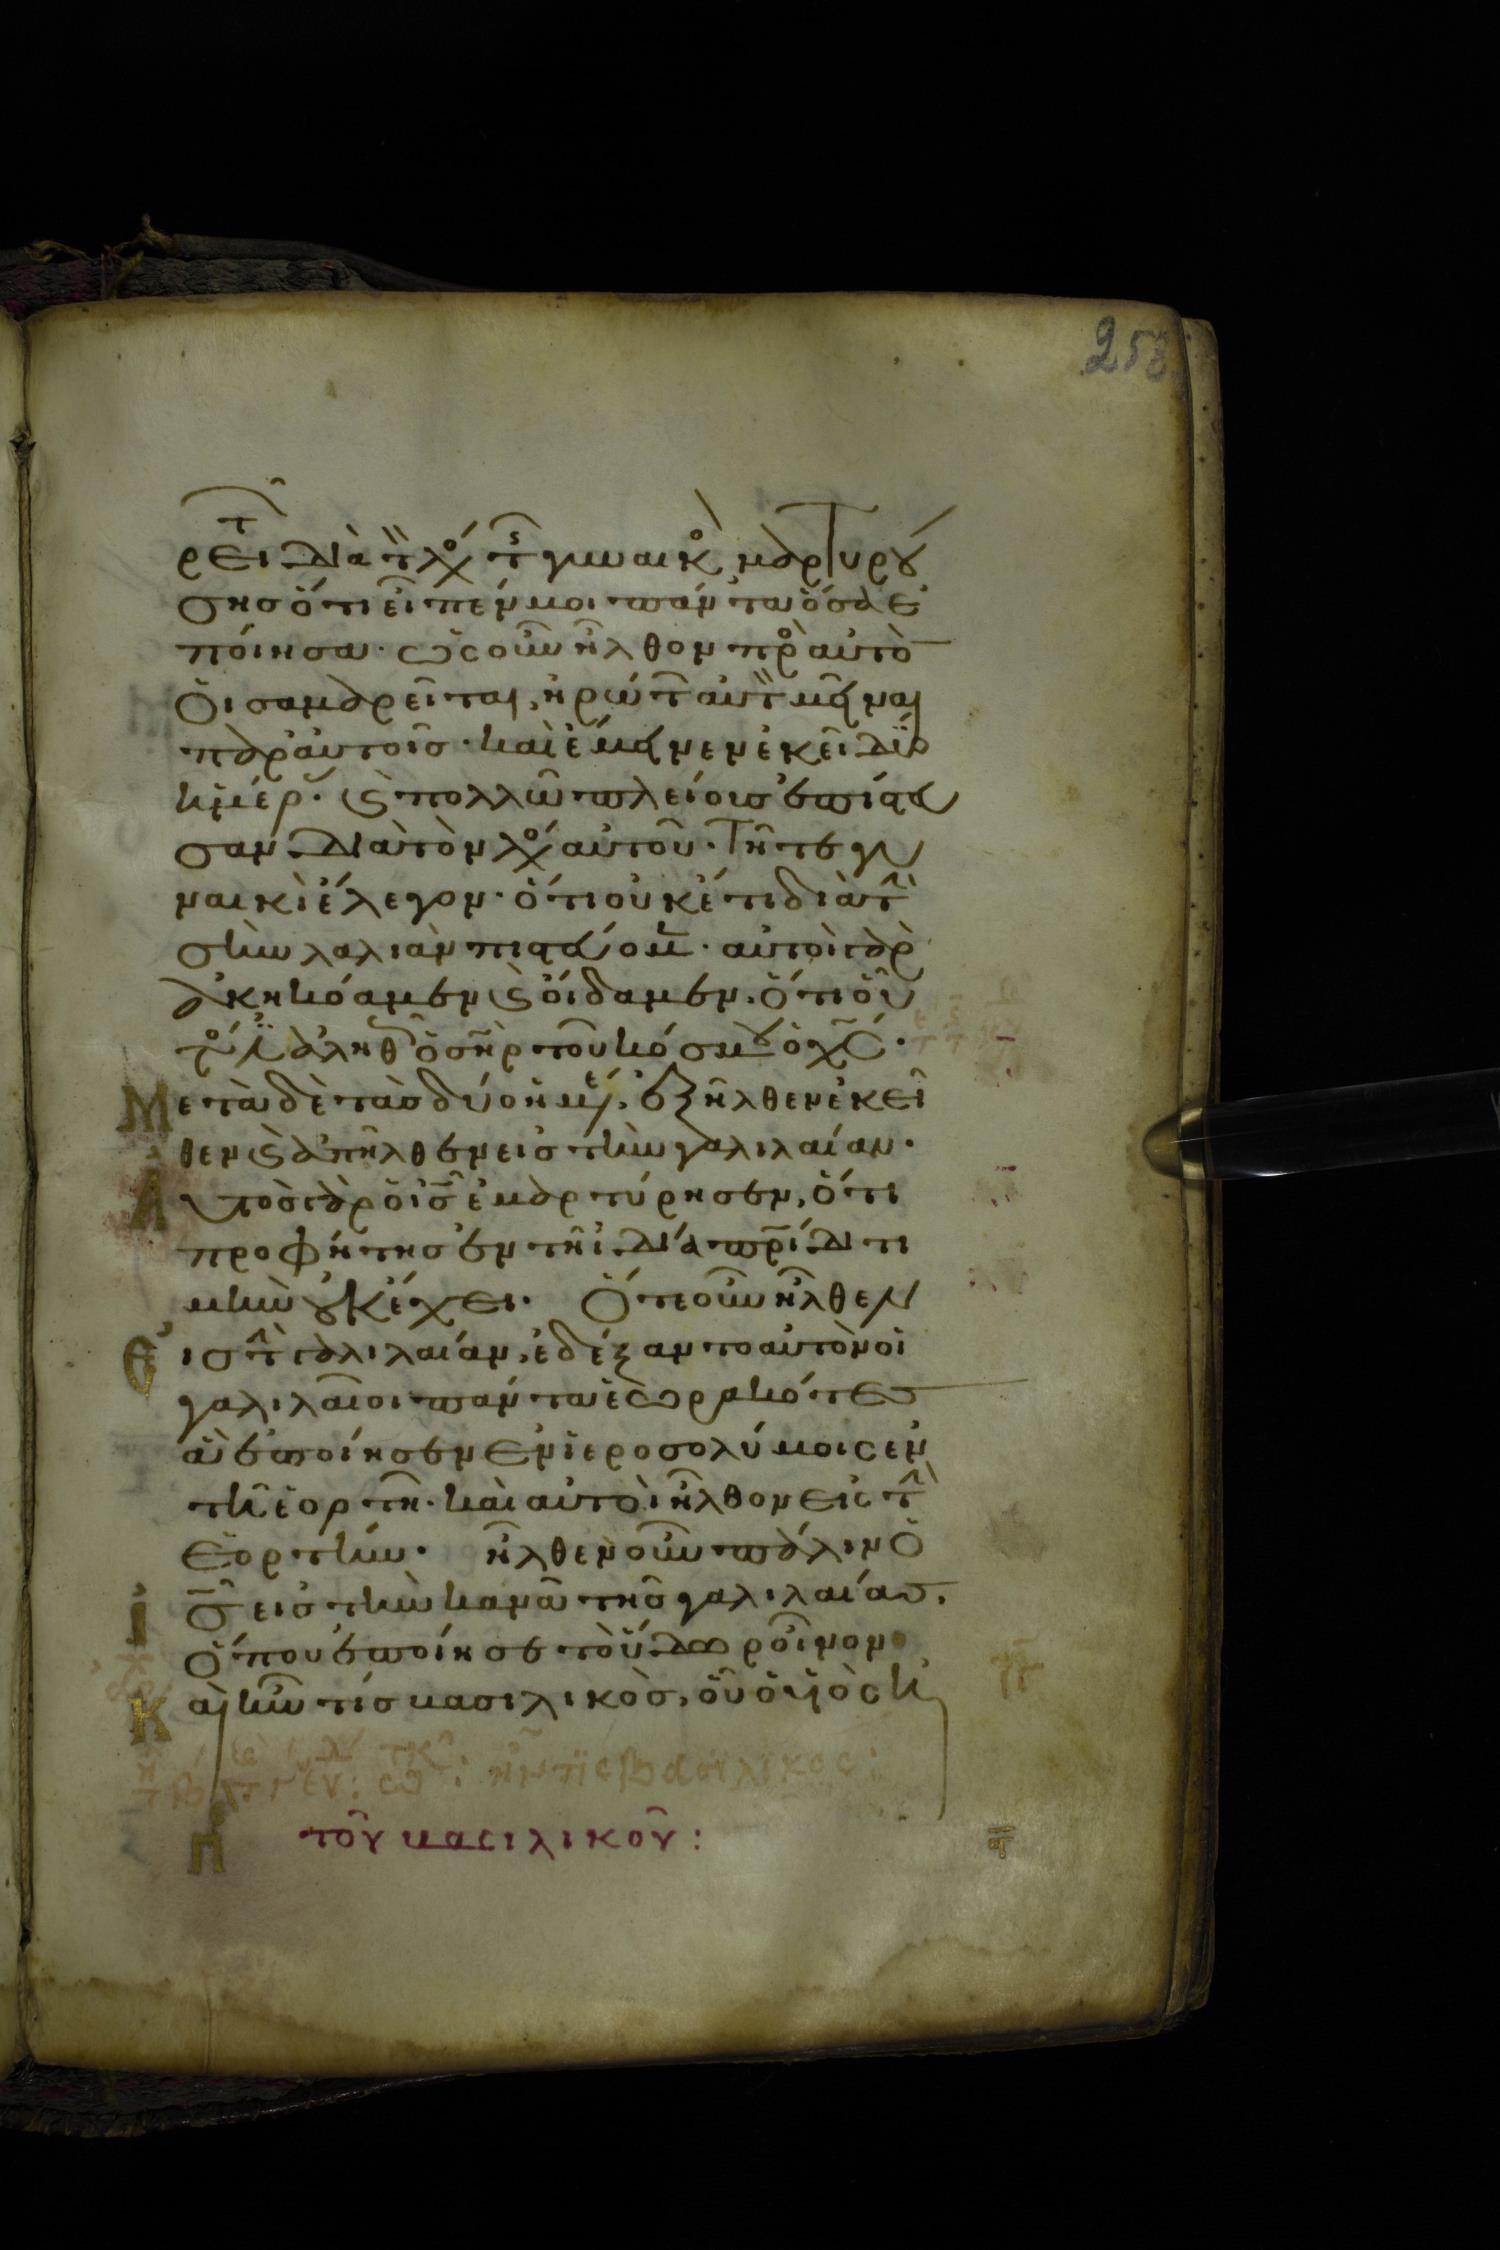 258
ρειτ διὰ τ λόγ τ γυναικὸ μαρτυρού
σησ ὅτι εἶπέν μοι πάντα ὅσα ἐ
ποίησα· ὡς οὖν ἦλθον πρὸ αὐτὸ
ὁι σαμαρεῖται, ἠρώτ αὐτ μεῖναι
παρ αὐτοῖσ· καὶ ἔμεινεν ἐκεῖ δύο
ἡμέρ· ϗ πολλῶ πλείουσ ἐπίστευ
σαν διὰ τὸν λόγ αὐτοῦ· Τῆ τε γυ
ναικὶ ἔλεγον· ὅτι οὐκέτι διὰ τὴ
σὴν λαλιὰν πιστεύομ· αὐτοὶ γὰρ
ἀκηκόαμεν ϗ οἴδαμεν· ὅτι οὗ
τό ἐ ἀληθ ὁ σηρ τοῦ κόσμου ὁ χσ·
Μετὰ δὲ τὰσ δύο ἡμέ, ἐξῆλθεν ἐκεῖ
θεν ϗ ἀπῆλθεν εἰσ τὴν γαλιλαίαν·
Αὐτὸσ γὰρ ὁ ισ ἐμαρτύρησεν, ὅτι
προφήτησ ἐν τῆ ἰδία πρίδι τι
μὴν οὐκ ἔχει· Ὅτε οὖν ἦλθεν
Εἰσ τὴ γαλιλαίαν, ἐδέξαντο αὐτὸν οἱ
γαλιλαῖοι πάντα ἑωρακότεσ
ἃ ἐποίησεν ἐν ἱεροσολύμοις ἐν
τῆ ἑορτῆ· καὶ αὐτοὶ ἦλθον εἰς τὴ
ἑορτήν· ἦλθεν οὖν πάλιν ὁ
Ἰσ εἰσ τὴν κανᾶ τῆσ γαλιλαίασ,
ὅπου ἐποίησε τὸ ὕδωρ οἶνον·
Καὶ ἦν τίσ βασιλικὸσ, οὗ ὁ υἱὸς ἠ
ἦν τις βασιλικος:
τοῦ βασιλικοῦ: